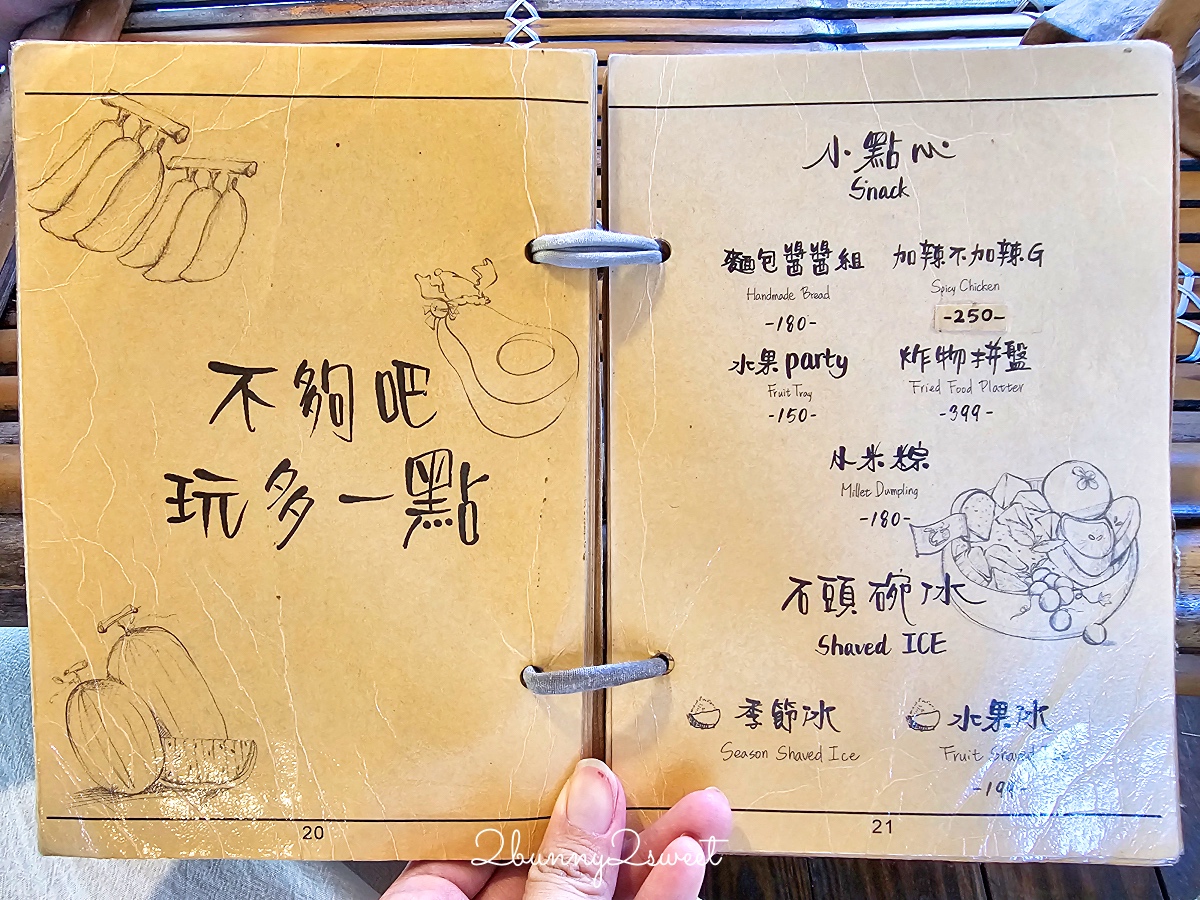 不夠吧
玩多一點
20
小點心
Snack
麵包醬醬組
Handmade Bread
-180-
加辣不加辣G
Spicy Chicken
-250-
水果party
Fruit Tray
-150-
炸物拼盤
Fried Food Platter
-399-
小米粽
Millet Dumpling
-180-
石頭碗冰
Shaved ICE
季節冰
Season Shaved Ice
水果冰
Fruit Shaved Ice
21
2bunny2sweet